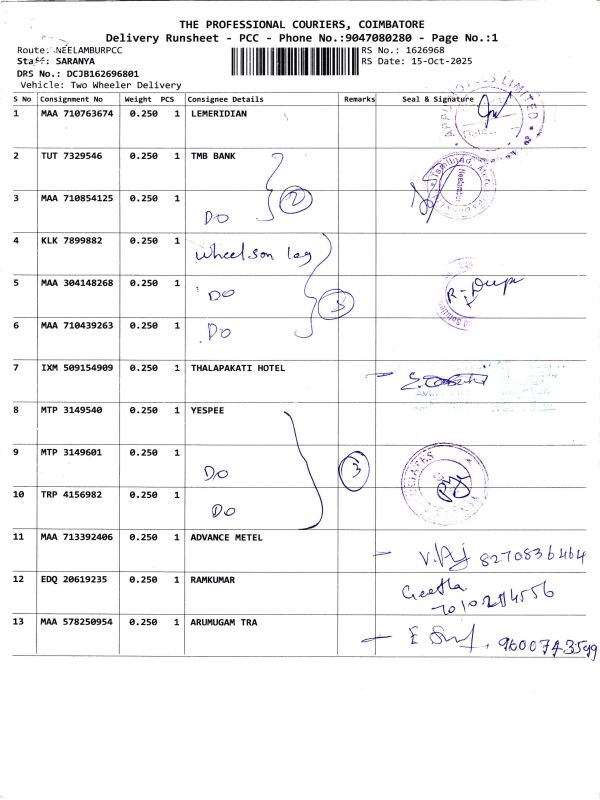 THE PROFESSIONAL COURIERS, COIMBATORE
Delivery Runsheet - PCC - Phone No.:9047080280 - Page No.:1
Route: NEELAMBURPCC RS No.: 1626968
Staff: SARANYA RS Date: 15-Oct-2025
DRS No.: DCJB162696801
Vehicle: Two Wheeler Delivery
S No Consignment No Weight PCS Consignee Details Remarks Seal & Signature
1 MAA 710763674 0.250 1 LEMERIDIAN
2 TUT 7329546 0.250 1 TMB BANK
2
3 MAA 710854125 0.250 1 DO
4 KLK 7899882 0.250 1 wheelson log
5 MAA 304148268 0.250 1 DO
3
6 MAA 710439263 0.250 1 DO
7 IXM 509154909 0.250 1 THALAPAKATI HOTEL
8 MTP 3149540 0.250 1 YESPEE
9 MTP 3149601 0.250 1 DO
3
10 TRP 4156982 0.250 1 DO
11 MAA 713392406 0.250 1 ADVANCE METEL
8270836464
12 EDQ 20619235 0.250 1 RAMKUMAR
Geetha
13 MAA 578250954 0.250 1 ARUMUGAM TRA
9600743599